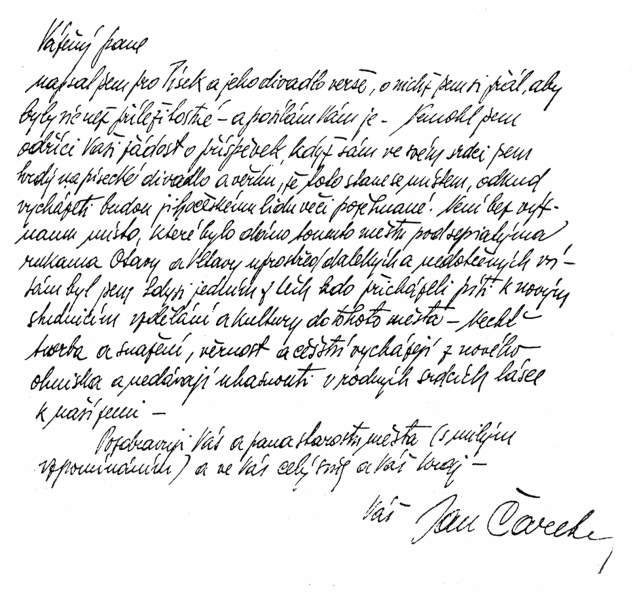 Vážený pane
napsal jsem pro Písek a jeho divadlo verše, o nichž jsem si přál, aby
byly více než příležitostné – a posílám Vám je – Nemohl jsem
odříci Vaši žádost o příspěvek, když sám ve svém srdci jsem
hrdý na písecké divadlo a věřím, že toto stane se místem, odkud
vycházeti budou jihočeskému lidu věci požehnané. Není bez výz-
namu místo, které bylo dáno tomuto městu pod sepiatýma
rukama Otavy a Vltavy uprostřed dalekých a nedotčených
sám byl jsem kdysi jedním z těch kdo přicházeli píti k novým
studnicím vzdělání a kultury do tohoto města – Nechť
tvorba a snažení, věrnost a češství vycházejí z nového
ohniska a nedávají uhasnouti v rodných srdcích lásce
k naší zemi –
Pozdravuji Vás a pana starostu města (s milým
vzpomínáním) a ve Vás celý a Váš kraj –
Váš Jan Čarek